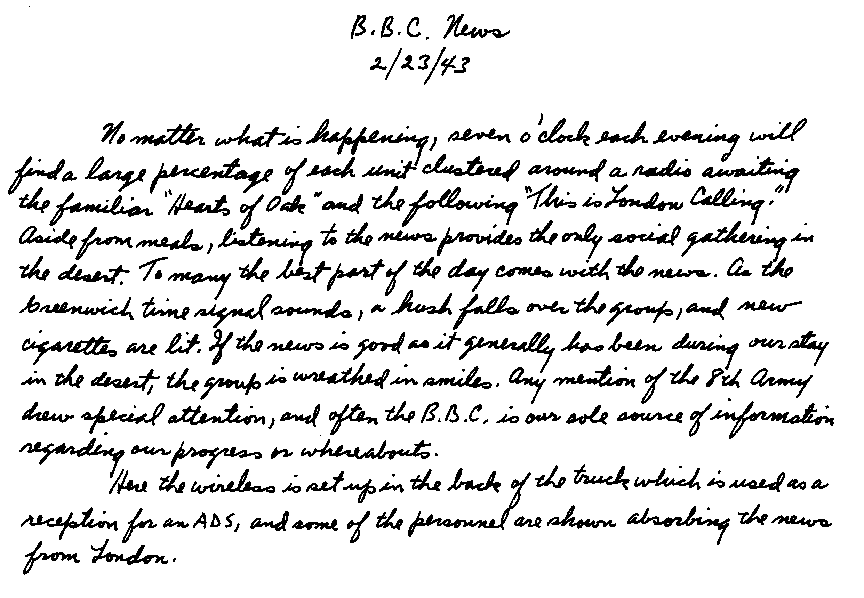 B.B.C. News
2/23/43
No matter what is happening, seven o'clock each evening will
find a large percentage of each unit clustered around a radio awaiting
the familiar "Hearts of Oak" and the following "This is London Calling."
Aside from meals, listening to the news provides the only social gathering in
the desert. To many the best part of the day comes with the news. As the
Greenwich time signal sounds, a hush falls over the group, and new
cigarettes are lit. If the news is good as it generally has been during our stay
in the desert, the group is wreathed in smiles. Any mention of the 8th Army
drew special attention, and often the B.B.C. is our sole source of information
regarding our progress or whereabouts.
Here the wireless is set up in the back of the truck which is used as a
reception for an ADS, and some of the personnel are shown absorbing the news
from London.